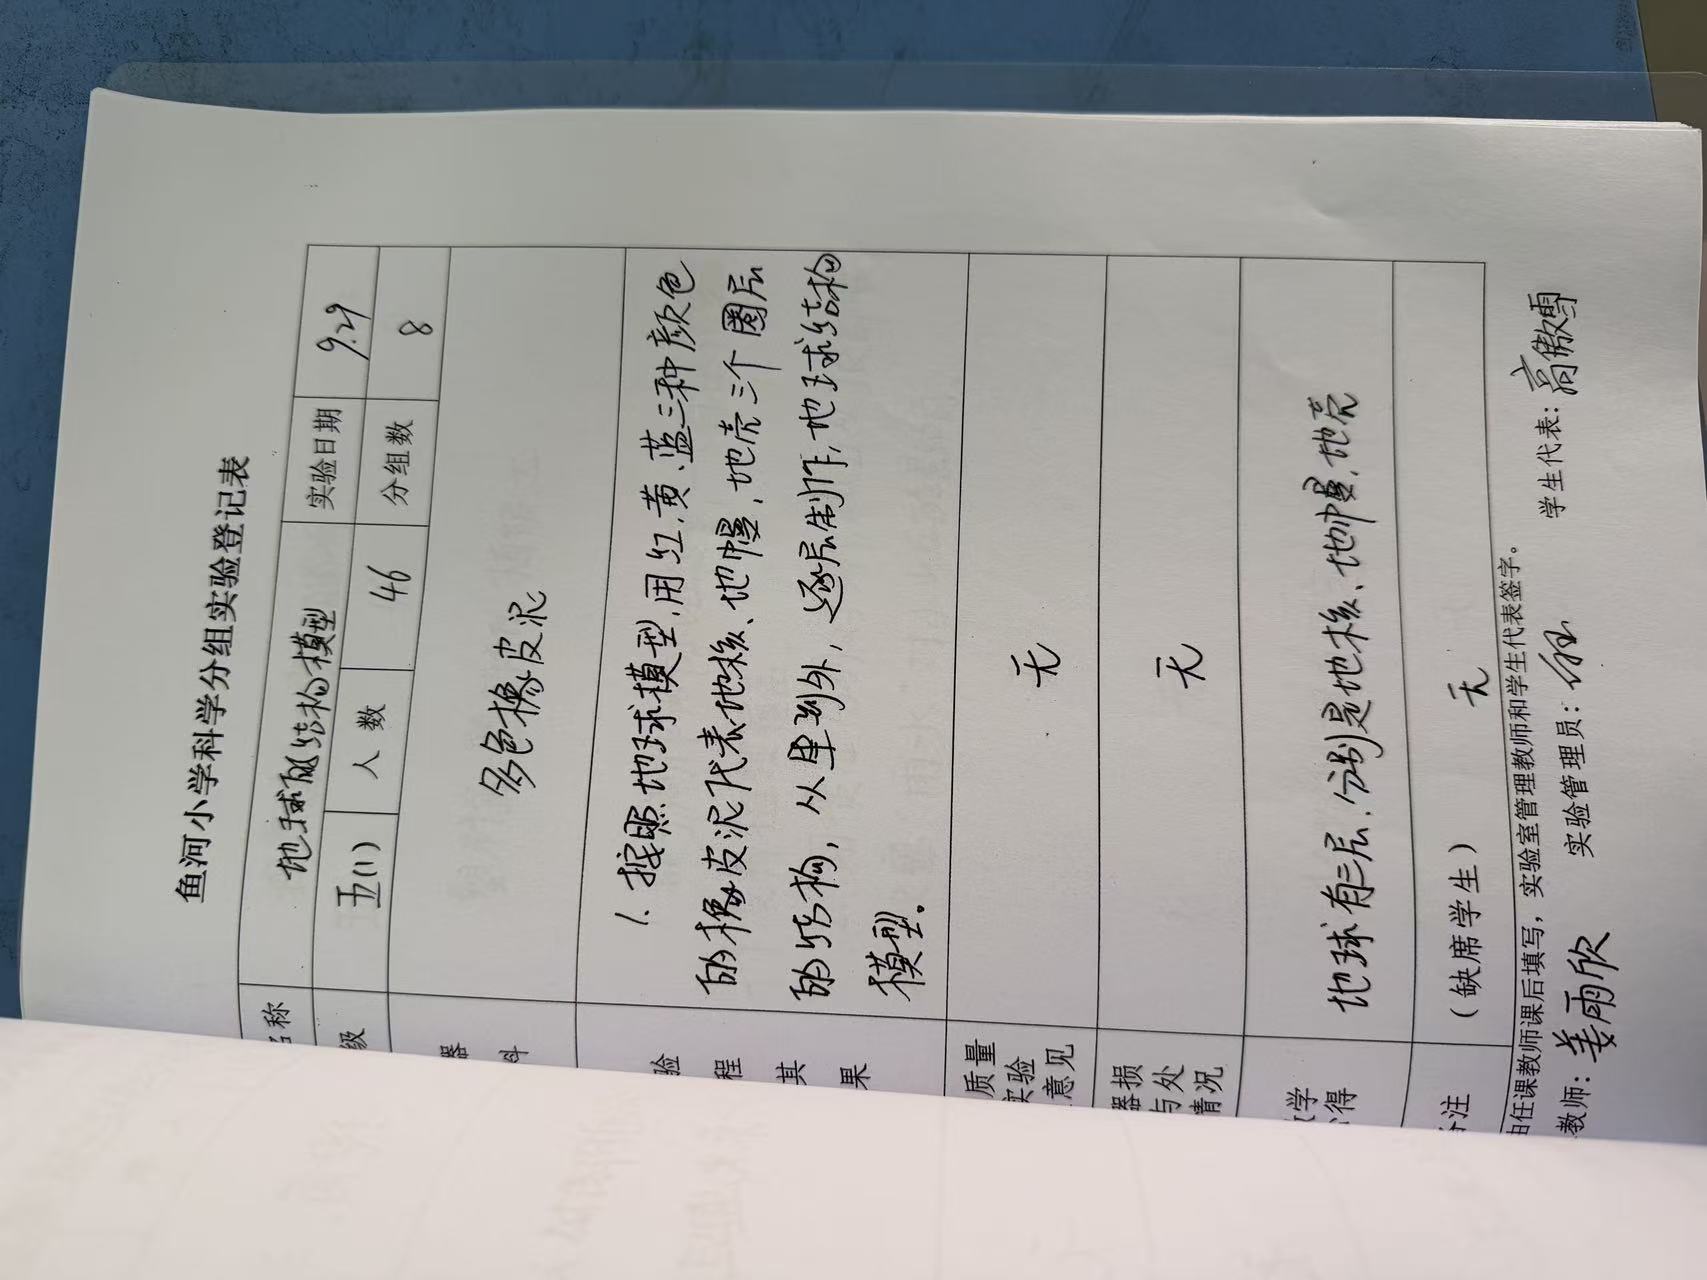 鱼河小学科学分组实验登记表
名称 地球的结构模型 实验日期 9.29
级 五(1) 人数 46 分组数 8
器 料 多色橡皮泥
验 程 其 果
1. 按照地球模型,用红、黄、蓝三种颜色
的橡皮泥代表地核、地幔、地壳三个圈层
的结构,从里到外,逐层制作,地球结构
模型。
质量 实验 意见 无
器损 与处 情况 无
学 得 地球有三层,分别是地核、地幔、地壳
注 (缺席学生) 无
由任课教师课后填写,实验室管理教师和学生代表签字。
教师: 姜雨欣 实验管理员: 学生代表: 高傲雪